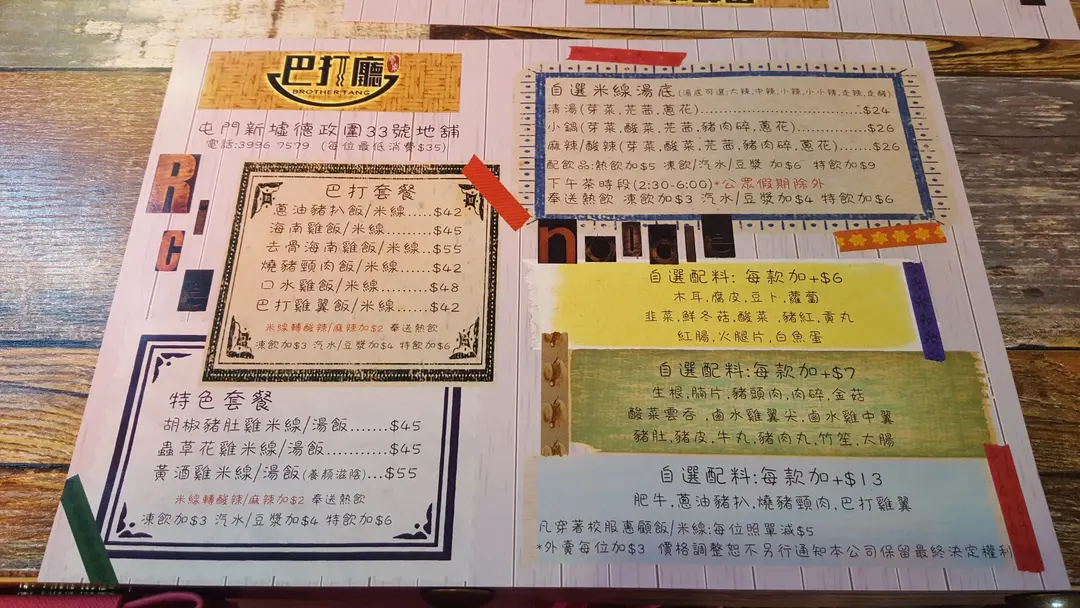 巴打廳
BROTHER TANG
屯門新墟德政圍33號地舖
電話:3996 7579 (每位最低消費$35)
R
i
c
e
巴打套餐
蔥油豬扒飯/米線.....$42
海南雞飯/米線......$45
去骨海南雞飯/米線...$55
燒豬頸肉飯/米線.....$42
口水雞飯/米線......$48
巴打雞翼飯/米線.....$42
米線轉酸辣/麻辣加$2 奉送熱飲
凍飲加$3 汽水/豆漿加$4 特飲加$6
特色套餐
胡椒豬肚雞米線/湯飯.......$45
蟲草花雞米線/湯飯.........$45
黃酒雞米線/湯飯(養顏滋陰)...$55
米線轉酸辣/麻辣加$2 奉送熱飲
凍飲加$3 汽水/豆漿加$4 特飲加$6
自選米線湯底(湯底可選:大辣,中辣,小辣,小小辣,走辣,走麻)
清湯(芽菜,芫茜,蔥花)......................$24
小鍋(芽菜,酸菜,芫茜,豬肉碎,蔥花)............$26
麻辣/酸辣(芽菜,酸菜,芫茜,豬肉碎,蔥花).......$26
配飲品:熱飲加$5 凍飲/汽水/豆漿 加$6 特飲加$9
下午茶時段(2:30-6:00)*公眾假期除外
奉送熱飲 凍飲加$3 汽水/豆漿加$4 特飲加$6
n
自選配料: 每款加+$6
木耳,腐皮,豆卜,蘿蔔
韭菜,鮮冬菇,酸菜 ,豬紅,貢丸
紅腸,火腿片,白魚蛋
自選配料:每款加+$7
生根,腩片,豬頭肉,肉碎,金菇
酸菜雲吞 ,鹵水雞翼尖,鹵水雞中翼
豬肚,豬皮,牛丸,豬肉丸,竹笙,大腸
自選配料:每款加+$13
肥牛,蔥油豬扒,燒豬頸肉,巴打雞翼
凡穿著校服惠顧飯/米線:每位照單減$5
*外賣每位加$3 價格調整恕不另行通知本公司保留最終決定權利